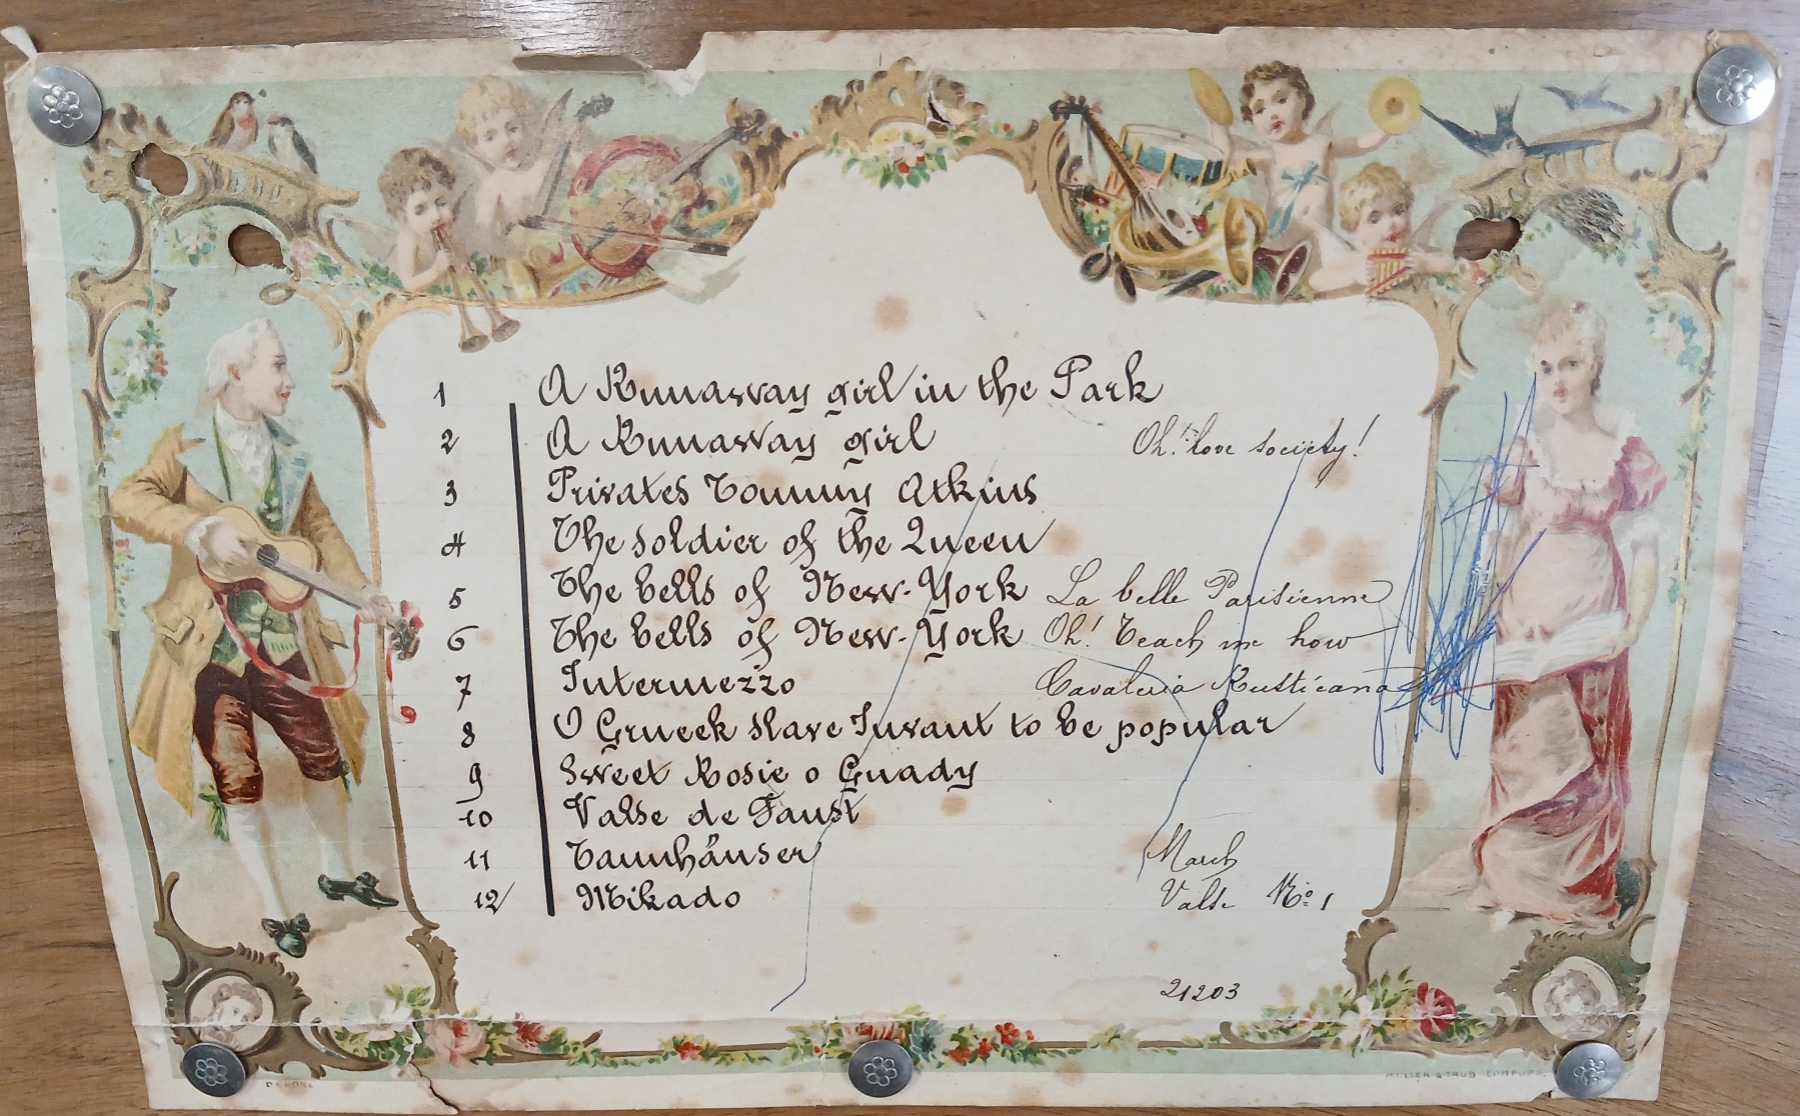 1 A Runaway girl in the Park
2 A Runaway girl Oh! love society!
3 Privates Tommy Atkins
4 The soldier of the Queen
5 The bells of New-York La belle Parisienne
6 The bells of New-York Oh! Teach me how
7 Intermezzo Cavaleria Rusticana
8 O Grueek slave I want to be popular
9 Sweet Rosie o Guady
10 Valse de Faust
11 Tannhäuser March
12 Mikado Valse No 1
21203
DEPOSE
MULLER & TRUB